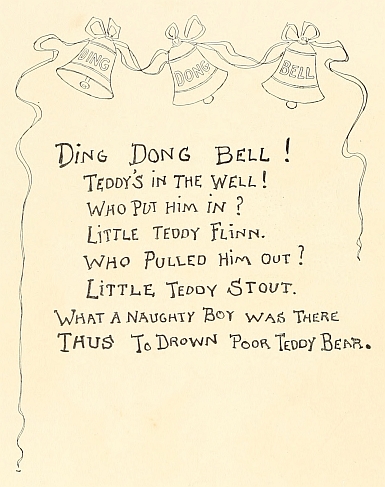 DING DONG BELL
DING DONG BELL!
TEDDY'S IN THE WELL!
WHO PUT HIM IN?
LITTLE TEDDY FLINN.
WHO PULLED HIM OUT?
LITTLE TEDDY STOUT.
WHAT A NAUGHTY BOY WAS THERE
THUS TO DROWN POOR TEDDY BEAR.